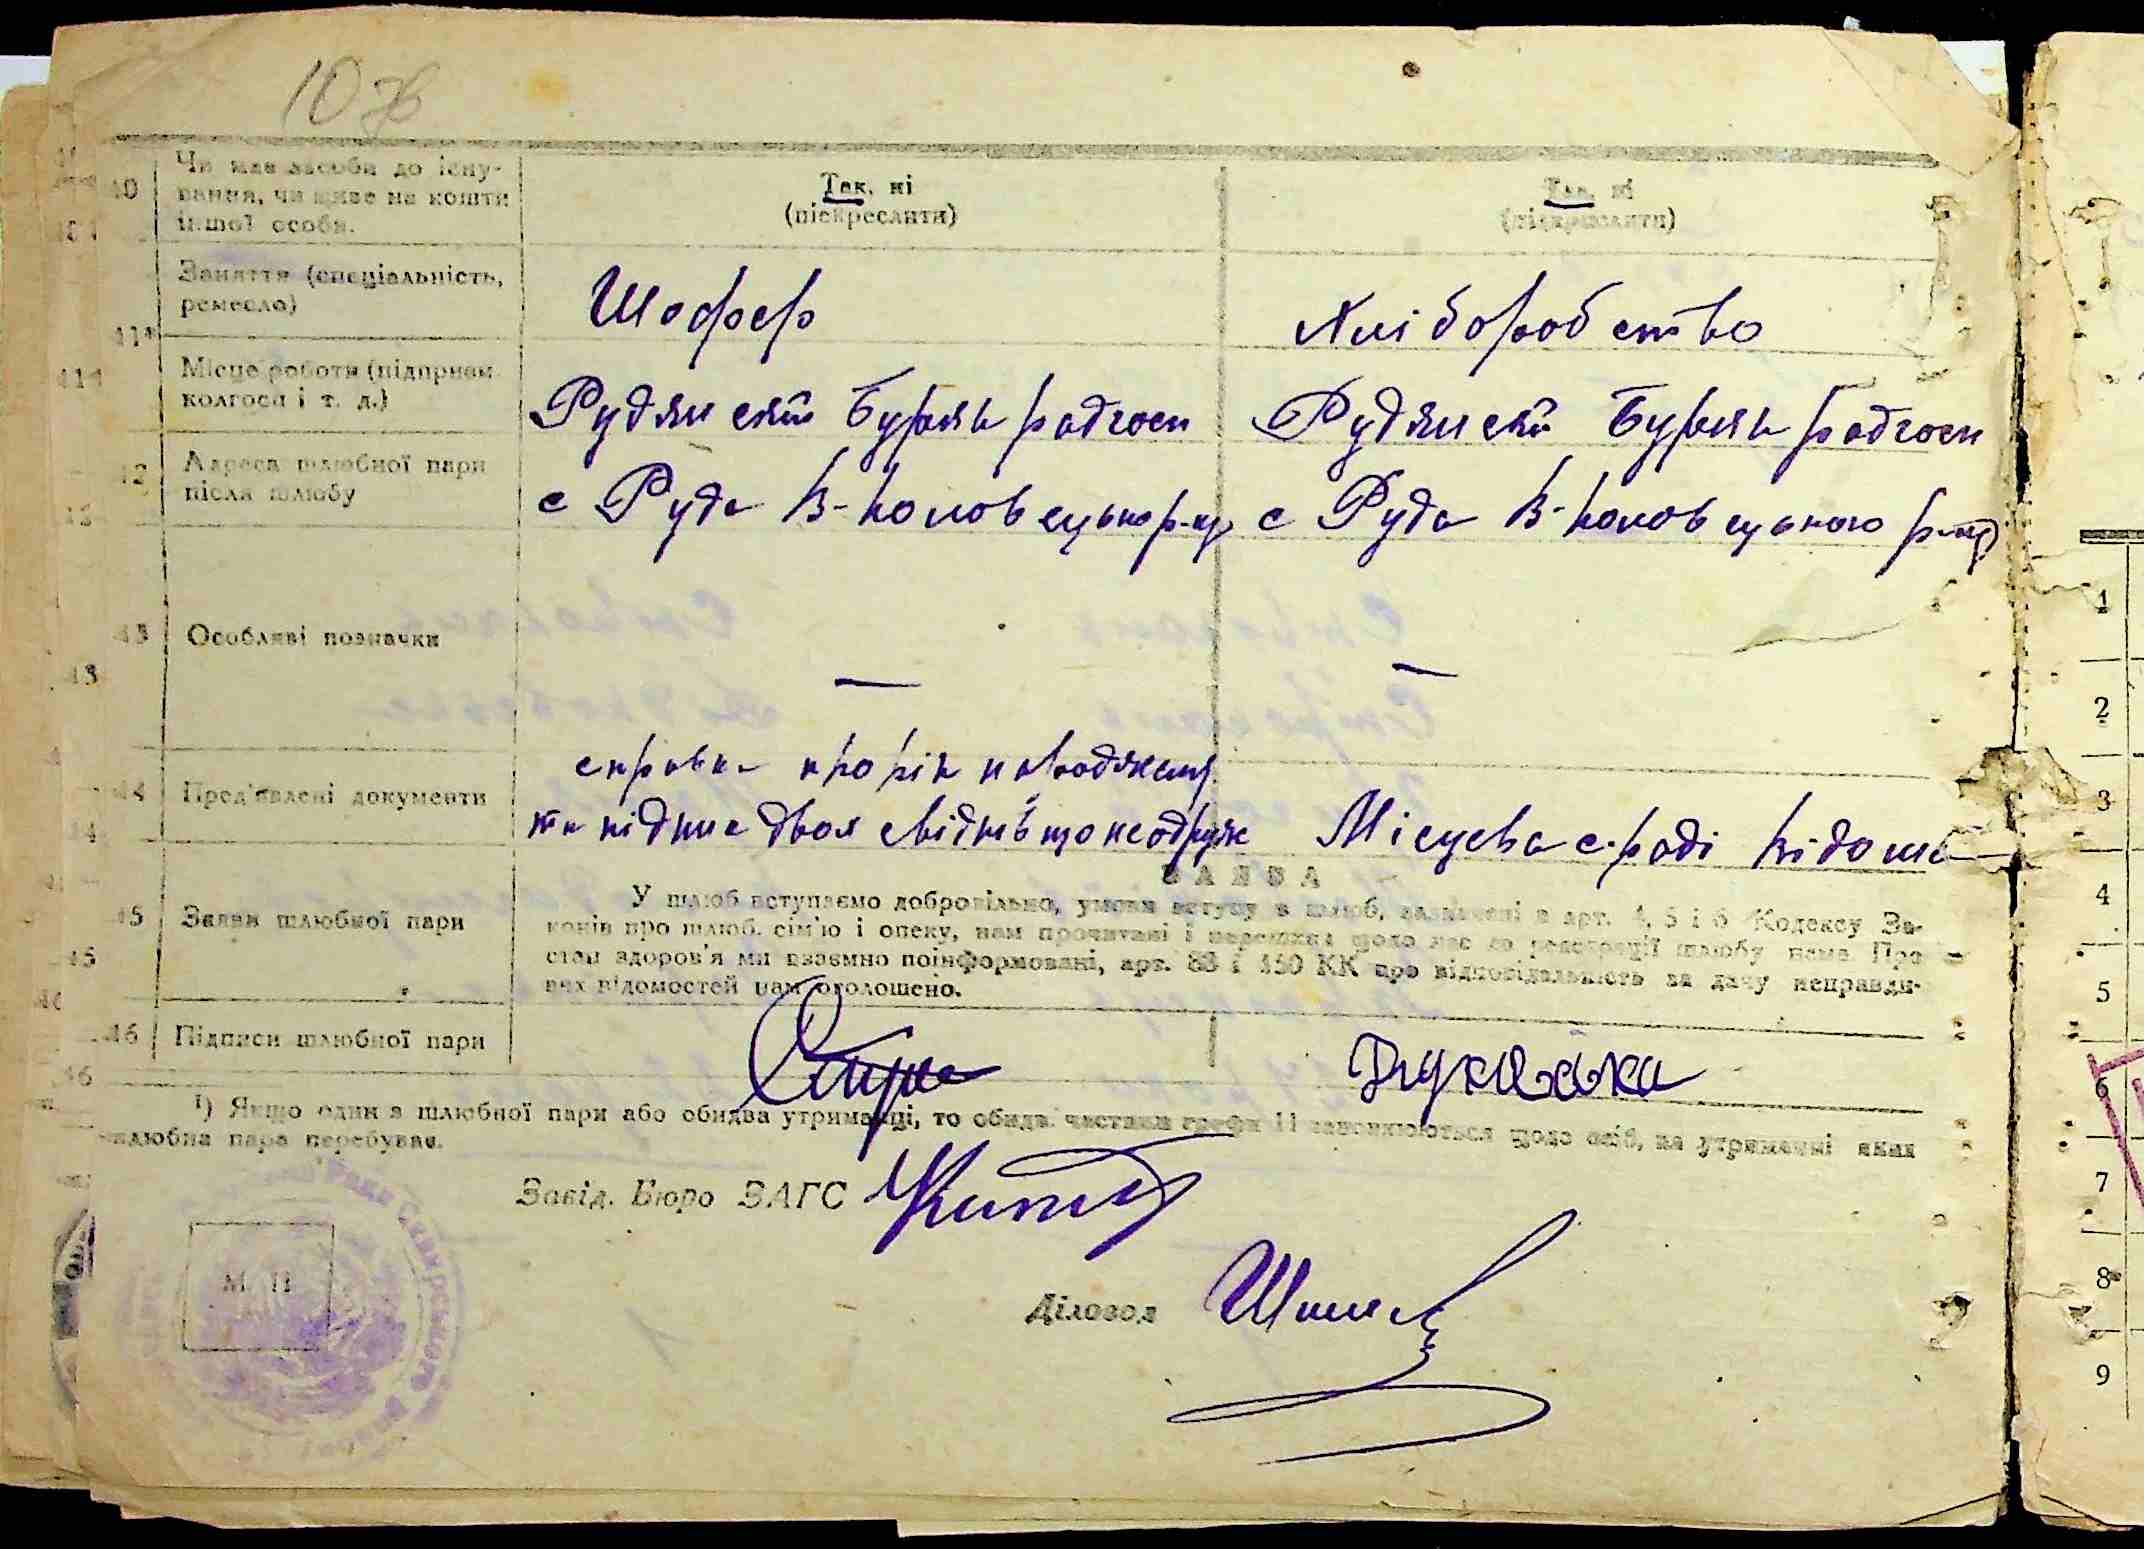 10
40 Чи має засоби до існу-
вання, чи живе на кошти
іншої особи.
Так, ні
(підкреслити)
Так, ні
(підкреслити)
Заняття (спеціальність,
ремесло)
Шофер
Хліборобство
41
Місце роботи (підприєм.
колгосп і т. д.)
Рудянский Буряк радгосп
Рудянский Буряк радгосп
12 Адреса шлюбної пари
після шлюбу
с Руда В-Половецько р-ну
с Руда В-Половецького р-ну
43 Особливі позначки
—
—
44 Пред'явлені документи
справка про рік народження
та підписа двох свідків що не одруж
Місцева с. раді відома
ЗАЯВА
45 Заяви шлюбної пари
У шлюб вступаємо добровільно, умови вступу в шлюб, зазначені в арт. 4, 5 і 6 Кодексу За-
конів про шлюб, сім'ю і опеку, нам прочитані і перешкод щодо нас до реєстрації шлюбу нема. Про
стан здоров'я ми взаємно поінформовані, арт. 88 і 150 КК про відповідальність за дачу неправди-
вих відомостей нам оголошено.
46 Підписи шлюбної пари
¹) Якщо один з шлюбної пари або обидва утриманці, то обидві частини графи 11 заповнюються щодо осіб, на утриманні яких
шлюбна пара перебуває.
Завід. Бюро ЗАГС
М. П
Діловод
1
2
3
4
5
6
7
8
9